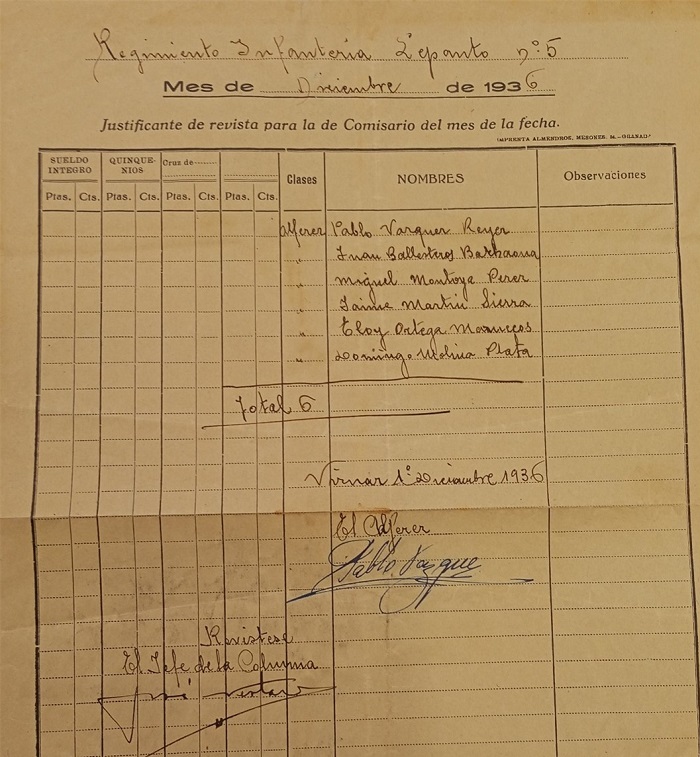 Regimiento Infanteria Lepanto nº 5
Mes de Diciembre de 1936
Justificante de revista para la de Comisario del mes de la fecha.
IMPRENTA ALMENDROS, MESONES, 54.-GRANADA
SUELDO INTEGRO QUINQUENIOS Cruz de Clases NOMBRES Observaciones
Ptas. Cts. Ptas. Cts. Ptas. Cts. Ptas. Cts.
Alferez Pablo Vazquez Reyes
" Juan Ballesteros Barhaona
" Miguel Montoya Perez
" Jaime Martin Sierra
" Eloy Ortega Marruecos
" Domingo Molina Plata
Total 6
Viznar 1º Diciembre 1936
El Alferez
Pablo Vazque
Revistese
El Jefe de la Columna
José